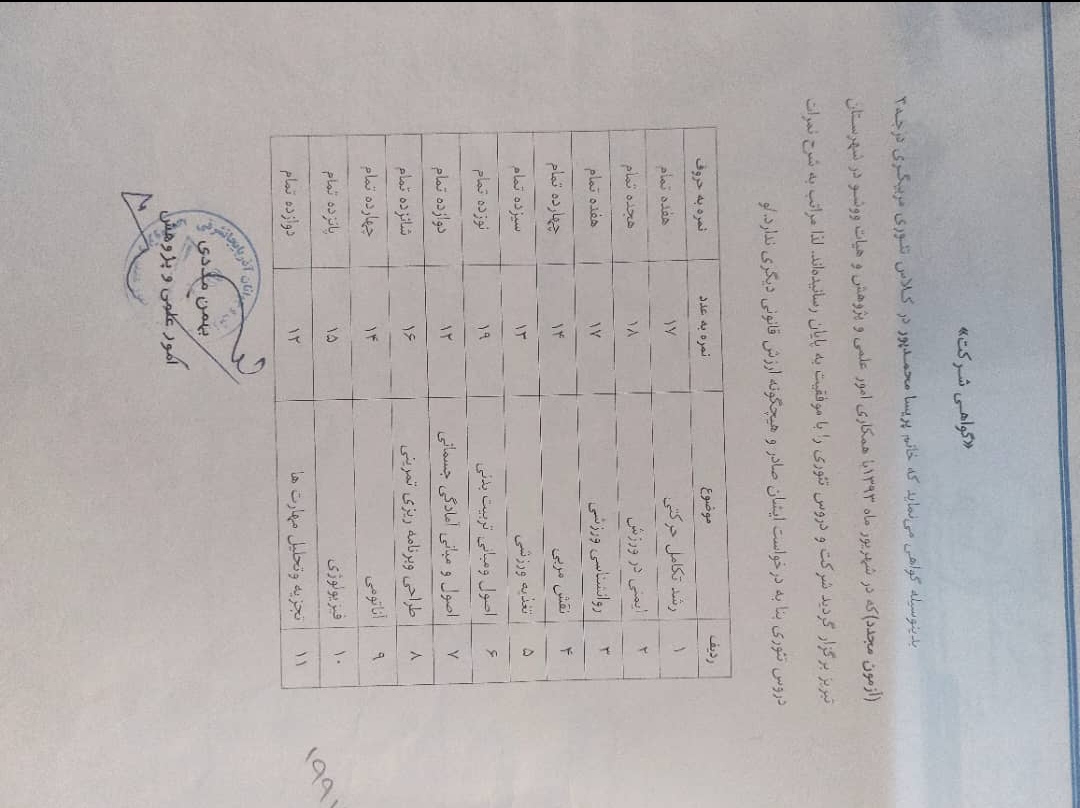 «گواهی شرکت»
بدینوسیله گواهی می‌نماید که خانم پریسا محمدپور در کلاس تئوری مربیگری درجه۳
(آزمون مجدد)که در شهریور ماه ۱۳۹۳با همکاری امور علمی و پژوهش و هیات ووشو در شهرستان
تبریز برگزار گردید شرکت و دروس تئوری را با موفقیت به پایان رسانیده‌اند. لذا مراتب به شرح نمرات
دروس تئوری بنا به درخواست ایشان صادر و هیچگونه ارزش قانونی دیگری ندارد./و
ردیف موضوع نمره به عدد نمره به حروف
۱ رشد تکامل حرکتی ۱۷ هفده تمام
۲ ایمنی در ورزش ۱۸ هیجده تمام
۳ روانشناسی ورزشی ۱۷ هفده تمام
۴ نقش مربی ۱۴ چهارده تمام
۵ تغذیه ورزشی ۱۳ سیزده تمام
۶ اصول ومبانی تربیت بدنی ۱۹ نوزده تمام
۷ اصول و مبانی آمادگی جسمانی ۱۲ دوازده تمام
۸ طراحی وبرنامه ریزی تمرینی ۱۶ شانزده تمام
۹ آناتومی ۱۴ چهارده تمام
۱۰ فیزیولوژی ۱۵ پانزده تمام
۱۱ تجزیه وتحلیل مهارت ها ۱۲ دوازده تمام
بهمن ملدی
امور علمی و پژوهش